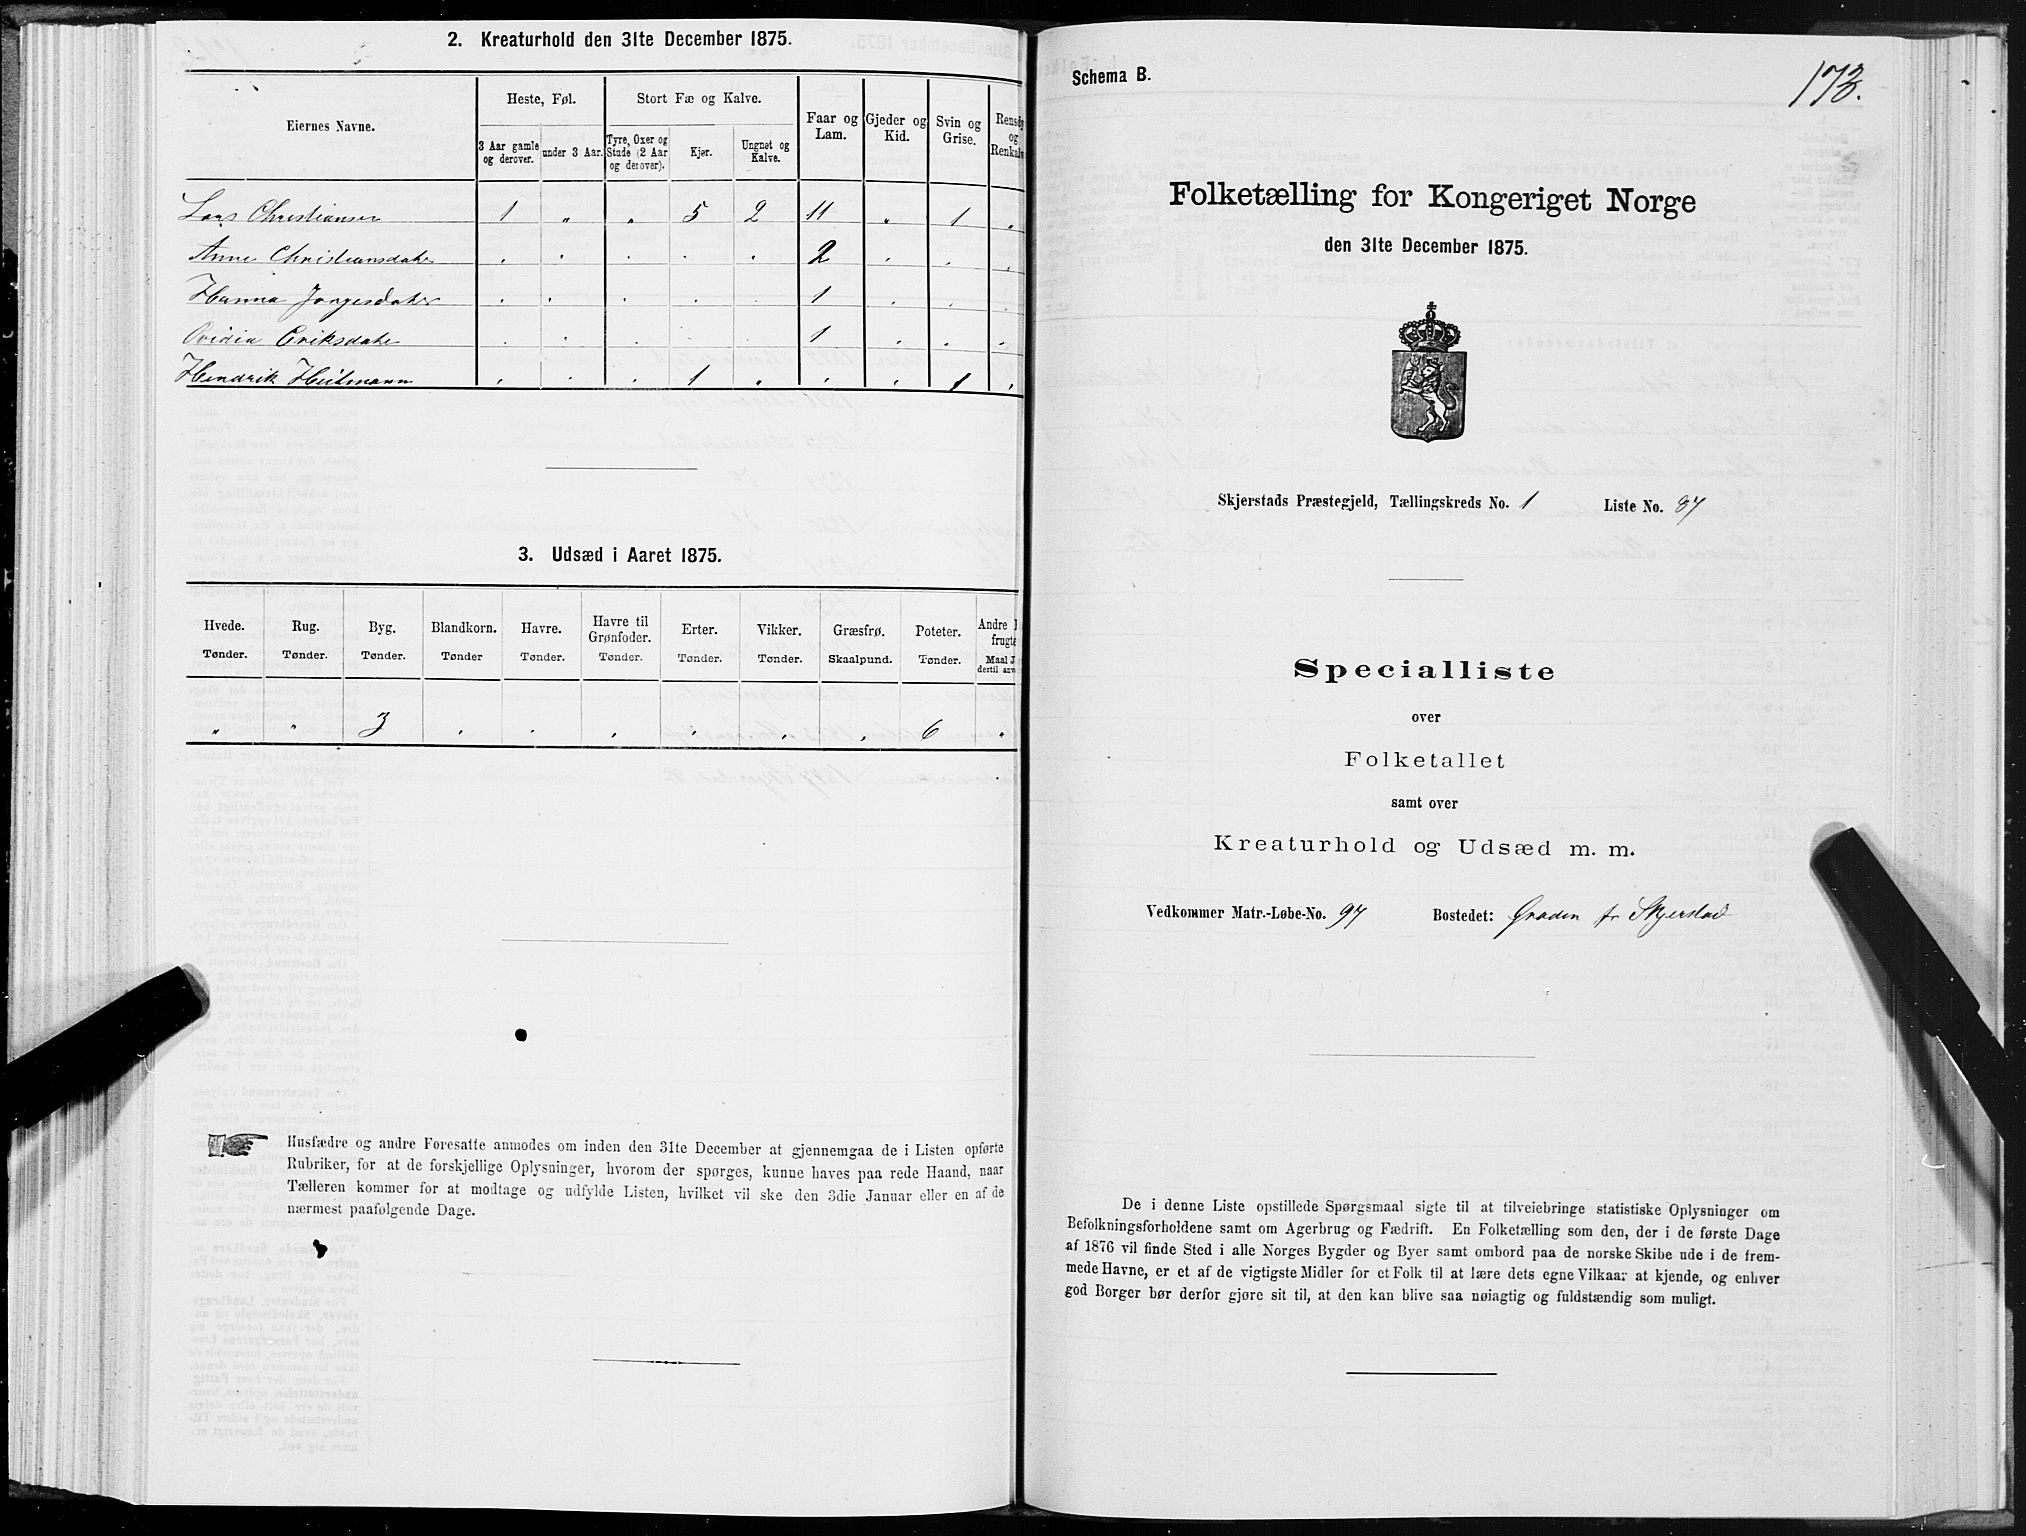 2. Kreaturhold den 31te December 1875.
Eiernes Navne.
Heste, Føl.
Stort Fæ og Kalve.
Faar og Lam.
Gjeder og Kid.
Svin og Grise.
Rensdy
og
Renkalv
3 Aar gamle og derover.
under 3 Aar.
Tyre, Oxer og Stude (2 Aar og derover).
Kjør.
Ungnøt og Kalve.
Lars Christiansen 1 " " 5 2 11 " 1 "
Anne Christiansdatter 2
Hanna Jørgesdatter 1
Ovidia Eriksdatter 1
Hendrik Heitmann 1 1
3. Udsæd i Aaret 1875.
Hvede. Rug. Byg. Blandkorn. Havre. Havre til Grønfoder. Erter. Vikker. Græsfrø. Poteter. Andre
frugte
Tønder. Tønder. Tønder. Tønder Tønder. Tønder. Tønder. Tønder. Skaalpund. Tønder. Maal
dertil anv
" " 3 " " " " " " 6 "
Husfædre og andre Foresatte anmodes om inden den 31te December at gjennemgaa de i Listen opførte
Rubriker, for at de forskjellige Oplysninger, hvorom der spørges, kunne haves paa rede Haand, naar
Tælleren kommer for at modtage og udfylde Listen, hvilket vil ske den 3die Januar eller en af de
nærmest paafølgende Dage.
Schema B.
173.
Folketælling for Kongeriget Norge
den 31te December 1875.
Skjerstads Præstegjeld, Tællingskreds No. 1 Liste No. 87
Specialliste
over
Folketallet
samt over
Kreaturhold og Udsæd m. m.
Vedkommer Matr.-Løbe-No. 97 Bostedet: Skjerstad
De i denne Liste opstillede Spørgsmaal sigte til at tilveiebringe statistiske Oplysninger om
Befolkningsforholdene samt om Agerbrug og Fædrift. En Folketælling som den, der i de første Dage
af 1876 vil finde Sted i alle Norges Bygder og Byer samt ombord paa de norske Skibe ude i de frem-
mede Havne, er et af de vigtigste Midler for et Folk til at lære dets egne Vilkaar at kjende, og enhver
god Borger bør derfor gjøre sit til, at den kan blive saa nøiagtig og fuldstændig som muligt.